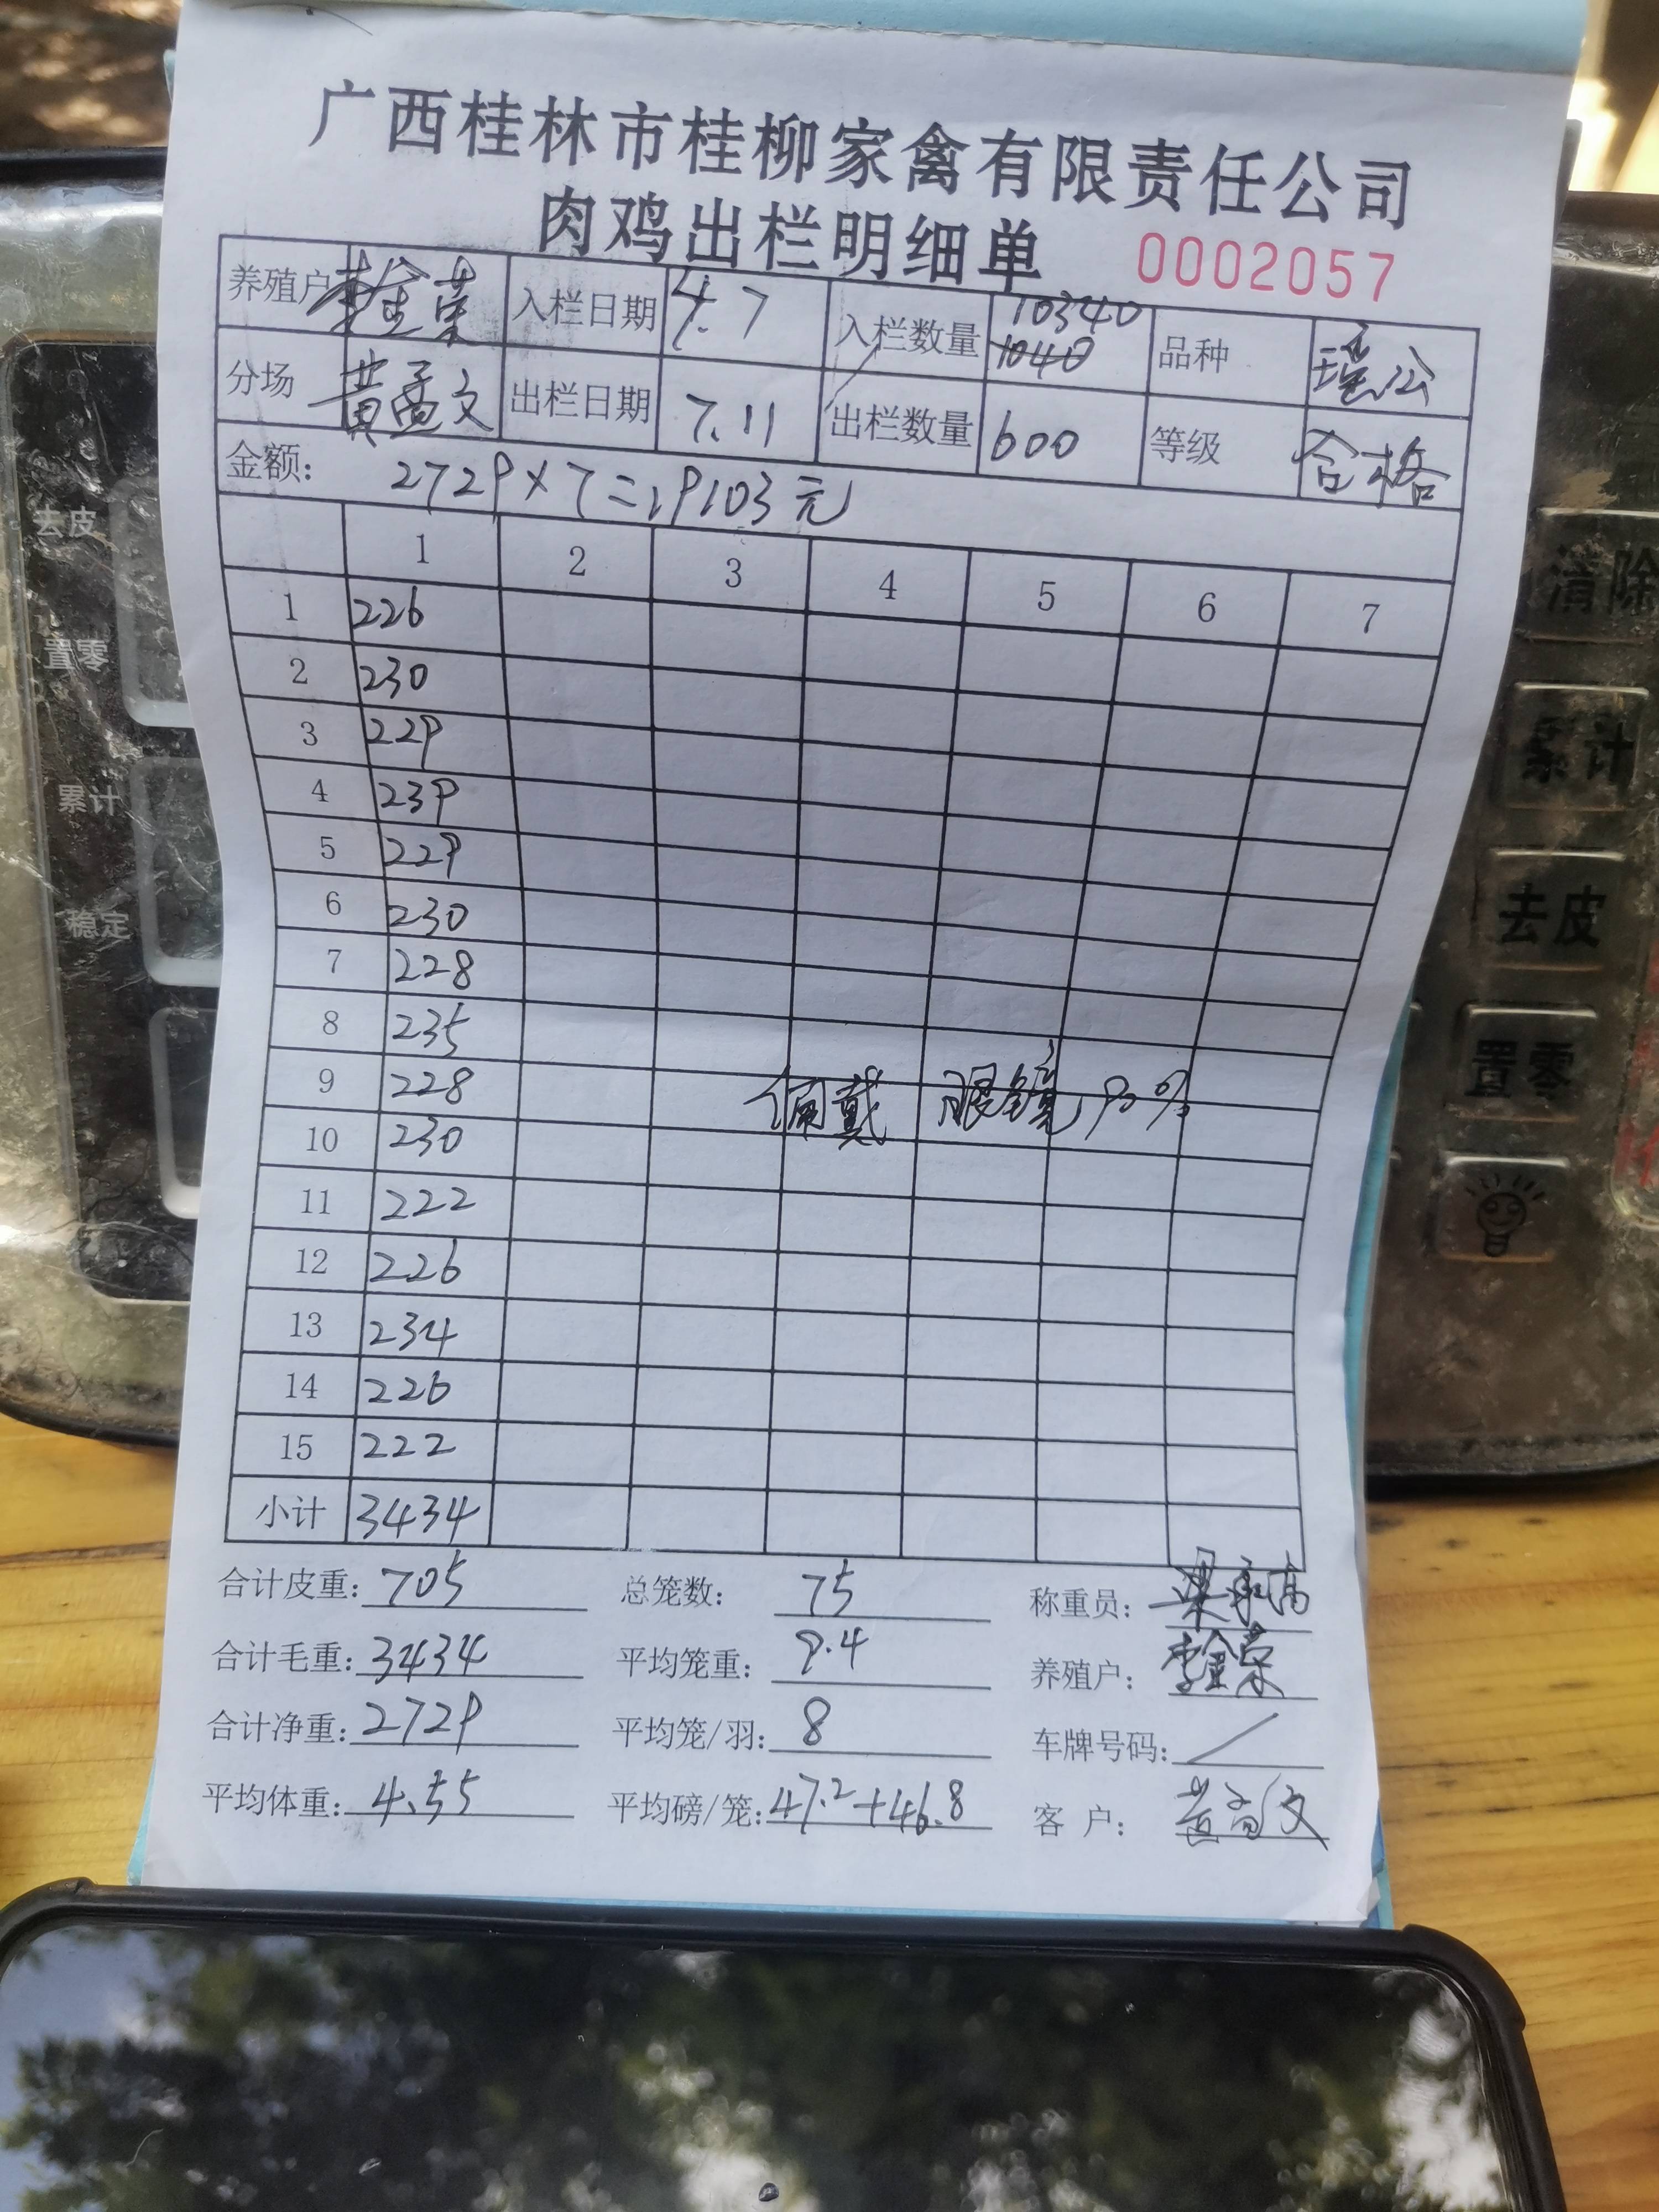 广西桂林市桂柳家禽有限责任公司
肉鸡出栏明细单 0002057
养殖户 李金荣 入栏日期 4.7 入栏数量 10340 品种 瑶公
分场 黄高文 出栏日期 7.11 出栏数量 600 等级 合格
金额: 2729×7=19103元
1 2 3 4 5 6 7
1 226
2 230
3 229
4 239
5 229
6 230
7 228
8 235
9 228 佩戴 眼镜 90%
10 230
11 222
12 226
13 234
14 226
15 222
小计 3434
合计皮重: 705 总笼数: 75 称重员:
合计毛重: 3434 平均笼重: 9.4 养殖户: 李金荣
合计净重: 2729 平均笼/羽: 8 车牌号码: /
平均体重: 4.55 平均磅/笼: 47.2+46.8 客户: 黄高文
去皮
置零
累计
稳定
清除
累计
去皮
置零